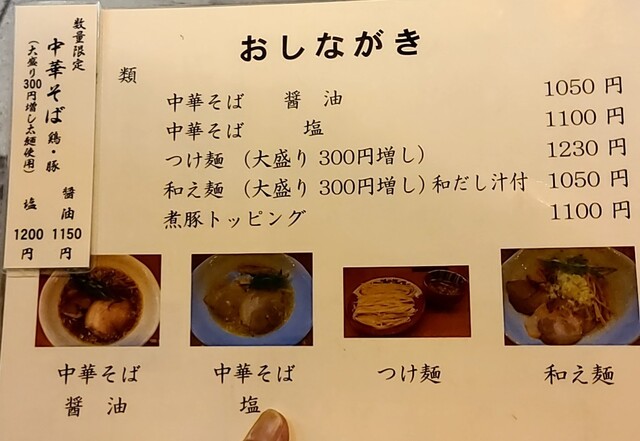 数量限定
中華そば 鶏・豚
(大盛り300円増し太麺使用)
醤油 1150円
塩 1200円
おしながき
類
中華そば 醤油 1050 円
中華そば 塩 1100 円
つけ麺 (大盛り 300円増し) 1230 円
和え麺 (大盛り 300円増し) 和だし汁付 1050 円
煮豚トッピング 1100 円
中華そば
醤油
中華そば
塩
つけ麺
和え麺